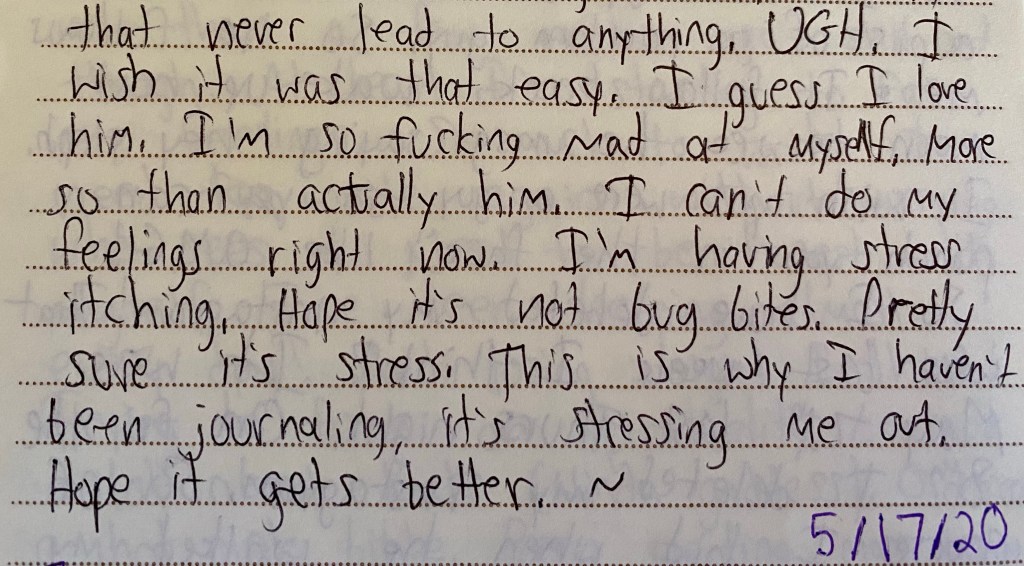 that never lead to anything. UGH. I
wish it was that easy. I guess I love
him. I'm so fucking mad at myself, more
so than actually him. I can't do my
feelings right now. I'm having stress
itching, Hope it's not bug bites. Pretty
sure it's stress. This is why I haven't
been journaling, it's stressing me out.
Hope it gets better. ~
5/17/20